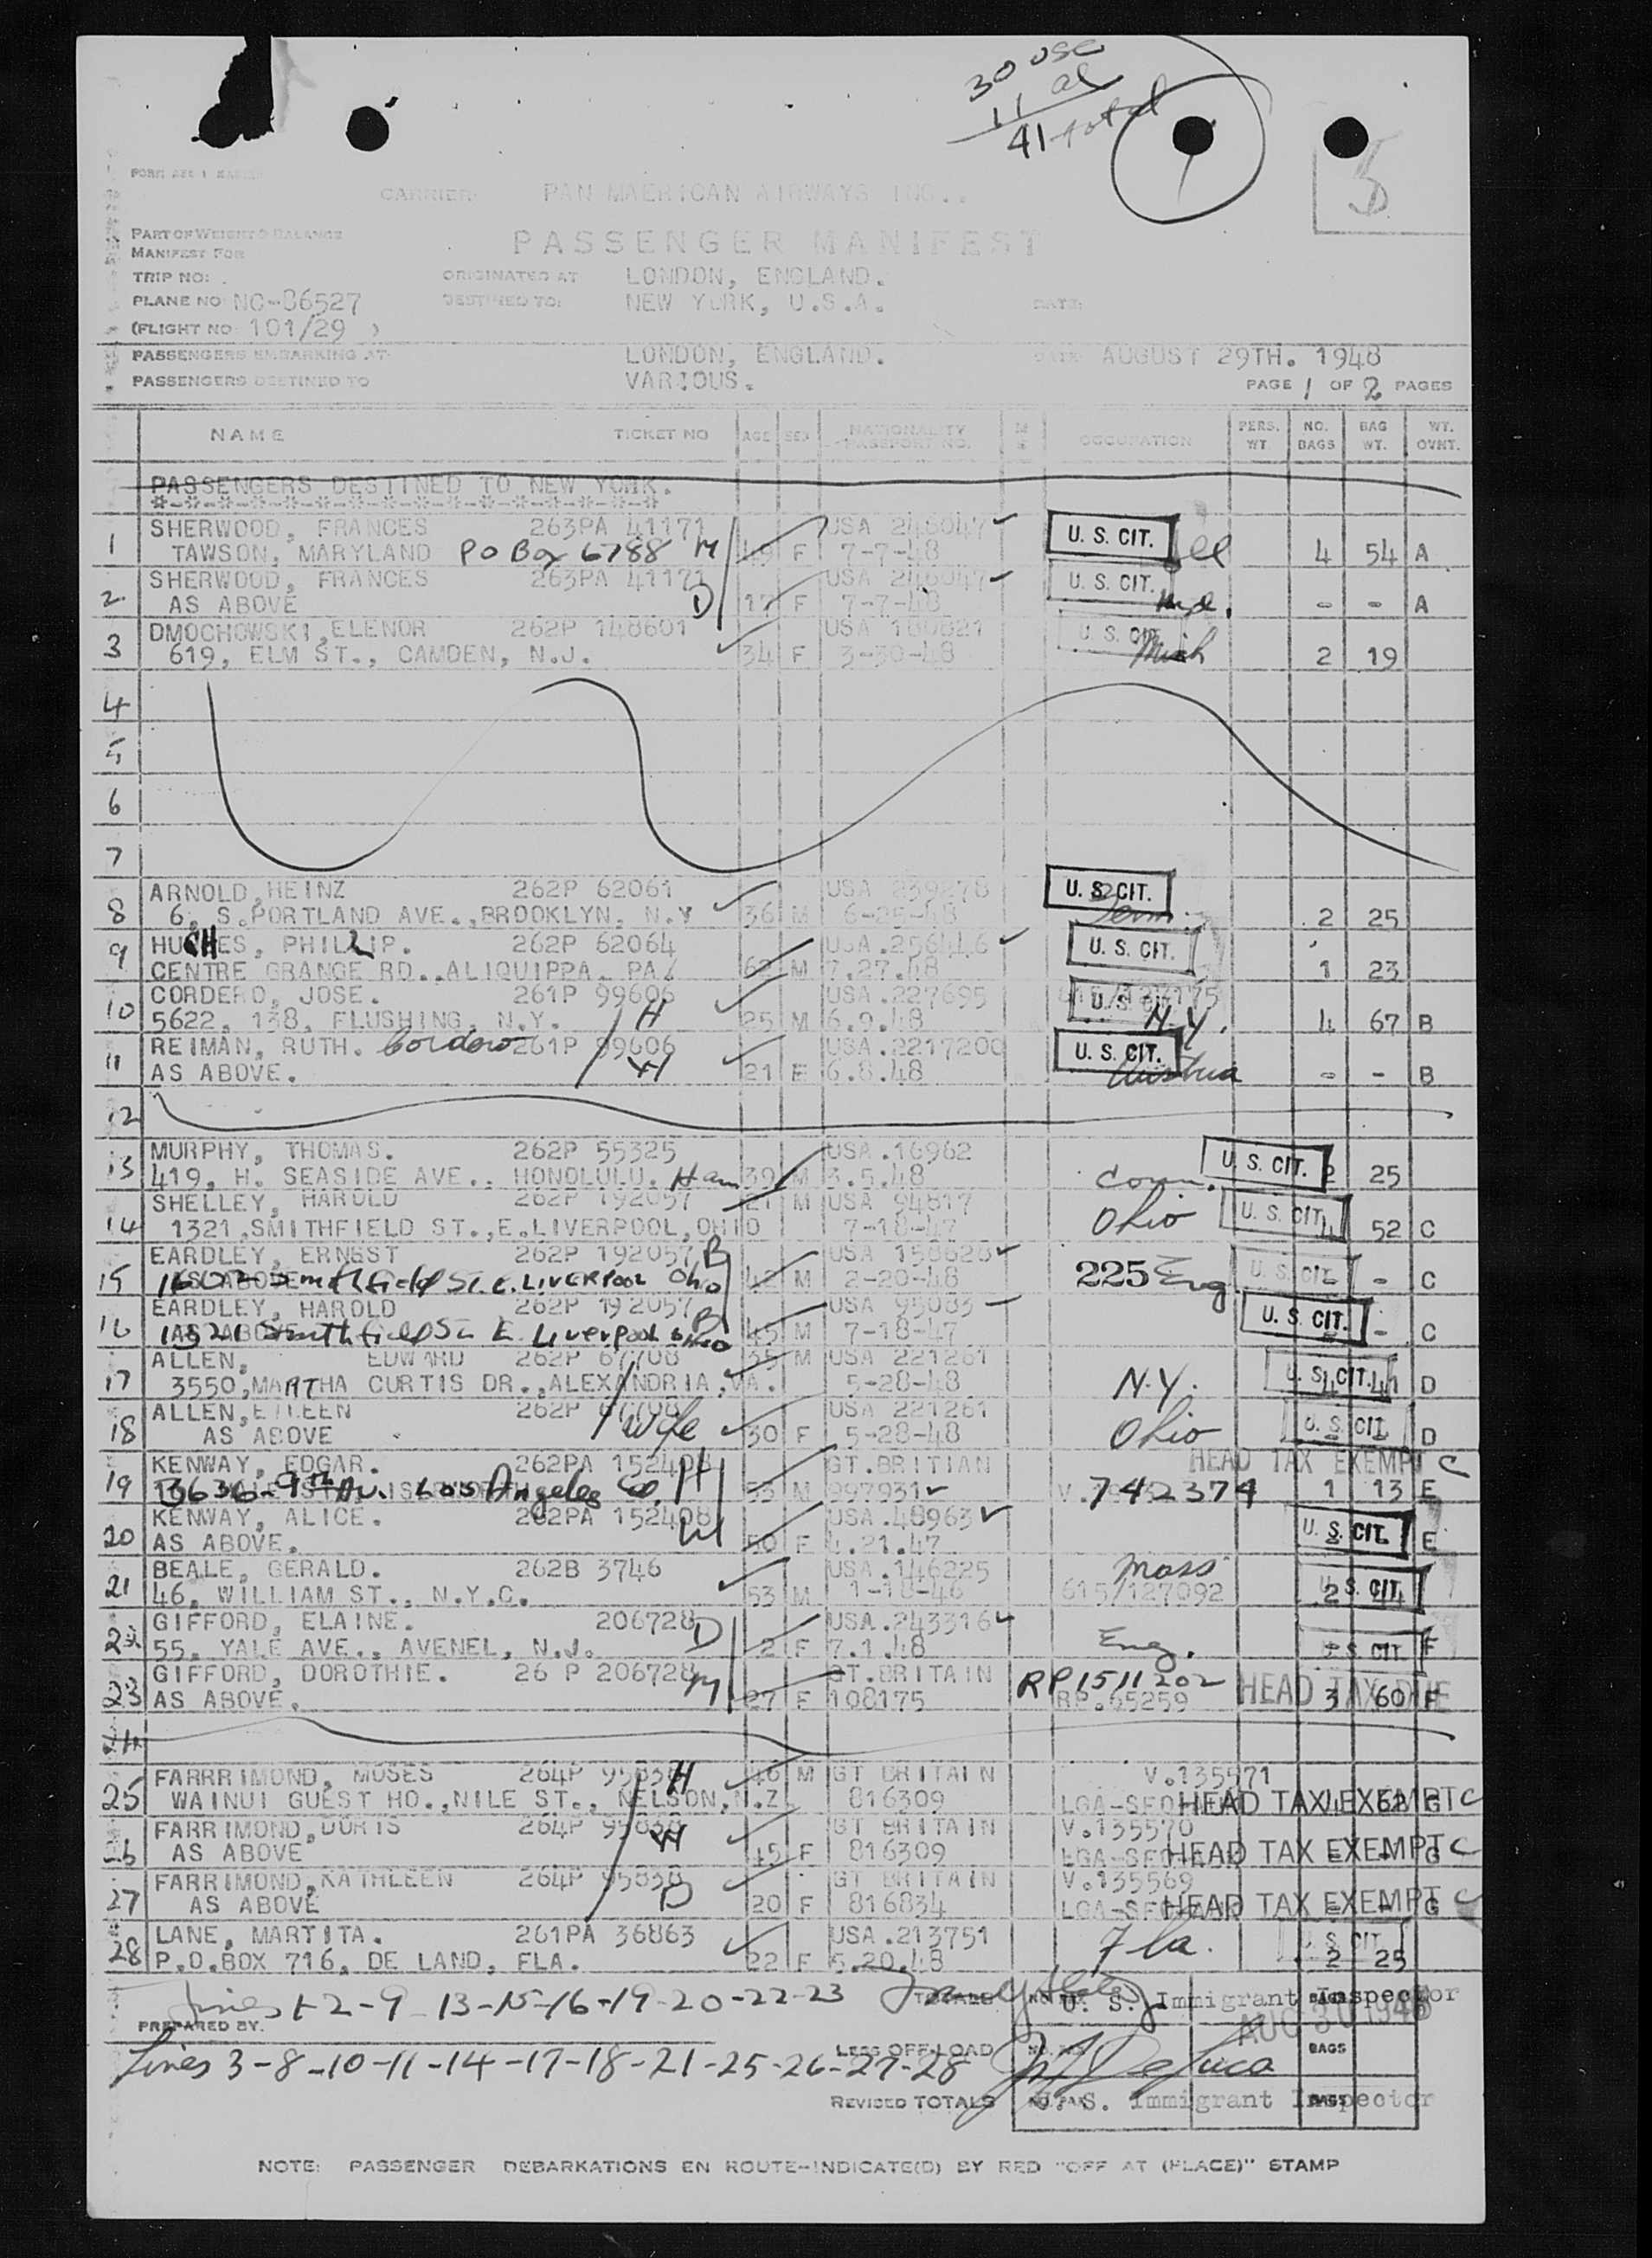 30 USC
11 al
41 total
1
5
CARRIER: PAN MAERICAN AIRWAYS INC..
PART OF WEIGHT & BALANCE
MANIFEST FOR
PASSENGER MANIFEST
TRIP NO:
ORIGINATED AT LONDON, ENGLAND.
PLANE NO: NC-86527
DESTINED TO: NEW YORK, U.S.A. DATE:
(FLIGHT NO: 101/29 )
PASSENGERS EMBARKING AT: LONDON, ENGLAND. DATE: AUGUST 29TH. 1948
PASSENGERS DESTINED TO VARIOUS. PAGE 1 OF 2 PAGES
NAME TICKET NO AGE SEX NATIONALITY PASSPORT NO. OCCUPATION PERS. WT. NO. BAGS BAG WT. WT. OVHT.
PASSENGERS DESTINED TO NEW YORK.
*-*-*-*-*-*-*-*-*-*-*-*-*-*-*-*
SHERWOOD, FRANCES 263PA 41171 USA 246047 U. S. CIT.
1 TAWSON, MARYLAND PO Box 6788 M 49 F 7-7-48 4 54 A
SHERWOOD, FRANCES 263PA 41171 USA 246047 U. S. CIT.
2 AS ABOVE D 17 F 7-7-48 - - A
DMOCHOWSKI, ELENOR 262P 148601 USA 180821 U. S. CIT.
3 619, ELM ST., CAMDEN, N.J. 34 F 3-30-48 Mich 2 19
4
5
6
7
ARNOLD, HEINZ 262P 62061 USA 239278 U. S. CIT.
8 6, S.PORTLAND AVE.,BROOKLYN, N.Y 36 M 6-25-48 2 25
HUGHES, PHILLIP. 262P 62064 USA.256446 U. S. CIT.
9 CENTRE GRANGE RD.,ALIQUIPPA, PA. 62 M 7.27.48 1 23
CORDERO, JOSE. 261P 99606 USA.227695 U. S. CIT.
10 5622, 138, FLUSHING, N.Y. H 25 M 6.9.48 N.Y. 4 67 B
REIMAN, RUTH. Cordero 261P 99606 USA.2217200 U. S. CIT.
11 AS ABOVE. W 21 F 6.8.48 Austria - - B
12
MURPHY, THOMAS. 262P 55325 USA.16962 U. S. CIT.
13 419, H. SEASIDE AVE., HONOLULU. Haw 39 M 3.5.48 Conn. 2 25
SHELLEY, HAROLD 262P 192057 21 M USA 94817 U. S. CIT.
14 1321,SMITHFIELD ST.,E.LIVERPOOL,OHIO 7-18-47 Ohio 4 52 C
EARDLEY, ERNEST 262P 192057 B USA 158628 U. S. CIT.
15 Smithfield St. E. LIVERPOOL Ohio 42 M 2-20-48 225 Eng - C
EARDLEY, HAROLD 262P 192057 B USA 95083 U. S. CIT.
16 1321 Smithfield St E. Liverpool Ohio 45 M 7-18-47 - - C
ALLEN, EDWARD 262P 67708 35 M USA 221261
17 3550,MARTHA CURTIS DR.,ALEXANDRIA,VA. 5-28-48 N.Y. U. S. CIT. D
ALLEN, EILEEN 262P 67708 USA 221261
18 AS ABOVE Wife 30 F 5-28-48 Ohio U. S. CIT. D
KENWAY, EDGAR. 262PA 152408 H GT.BRITIAN HEAD TAX EXEMPT C
19 3636-9th Av. Los Angeles 53 M 997931 V. 742374 1 13 E
KENWAY, ALICE. 262PA 152408 W USA.48963 U. S. CIT.
20 AS ABOVE. 50 F 4.21.47 - E
BEALE, GERALD. 262B 3746 USA.146225 Mass
21 46, WILLIAM ST., N.Y.C. 53 M 1-18-46 615/127092 U. S. CIT. 2 44
GIFFORD, ELAINE. 206728 D USA.243316
22 55, YALE AVE., AVENEL, N.J. 2 F 7.1.48 Eng. U. S. CIT. F
GIFFORD, DOROTHIE. 26 P 206728 M GT.BRITAIN RP1511202
23 AS ABOVE. 27 F 108175 RP.65259 HEAD TAX DUE 3 60 F
FARRRIMOND, MOSES 264P 95838 H 46 M GT BRITAIN V.135571
25 WAINUI GUEST HO.,NILE ST., NELSON,N.Z. 816309 HEAD TAX EXEMPT C G
FARRIMOND, DORIS 264P 95838 GT BRITAIN V.135570
26 AS ABOVE W 45 F 816309 HEAD TAX EXEMPT C G
FARRIMOND, KATHLEEN 264P 95838 GT BRITAIN V.135569
27 AS ABOVE D 20 F 816834 HEAD TAX EXEMPT C G
LANE, MARTITA. 261PA 36863 USA.213751
28 P.O.BOX 716, DE LAND, FLA. 22 F 5.20.48 Fla. U. S. CIT. 2 25
Lines 1-2-9-13-15-16-19-20-22-23 TOTALS U. S. Immigrant Inspector
PREPARED BY: AUG 30 1948
Lines 3-8-10-11-14-17-18-21-25-26-27-28 LESS OFF-LOAD BAGS
REVISED TOTALS U. S. Immigrant Inspector BAGS
NOTE: PASSENGER DEBARKATIONS EN ROUTE-INDICATE(D) BY RED "OFF AT (PLACE)" STAMP